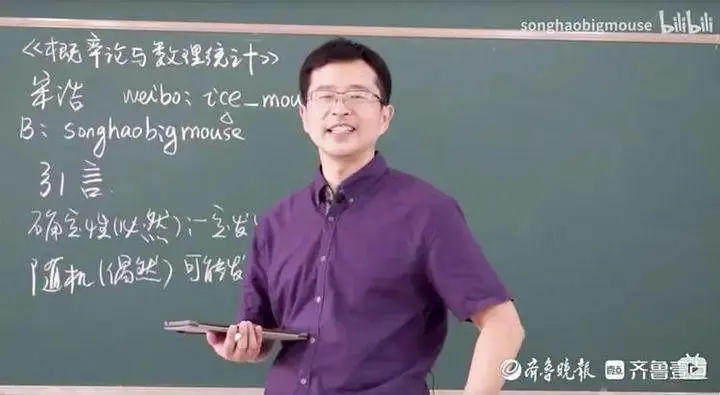 songhaobigmouse bilibili
《概率论与数理统计》
宋浩 weibo: ice_mou
B: songhaobigmouse
引言
确定性(必然):一定发
随机(偶然)可能发
齐鲁晚报 壹点 齐鲁壹点